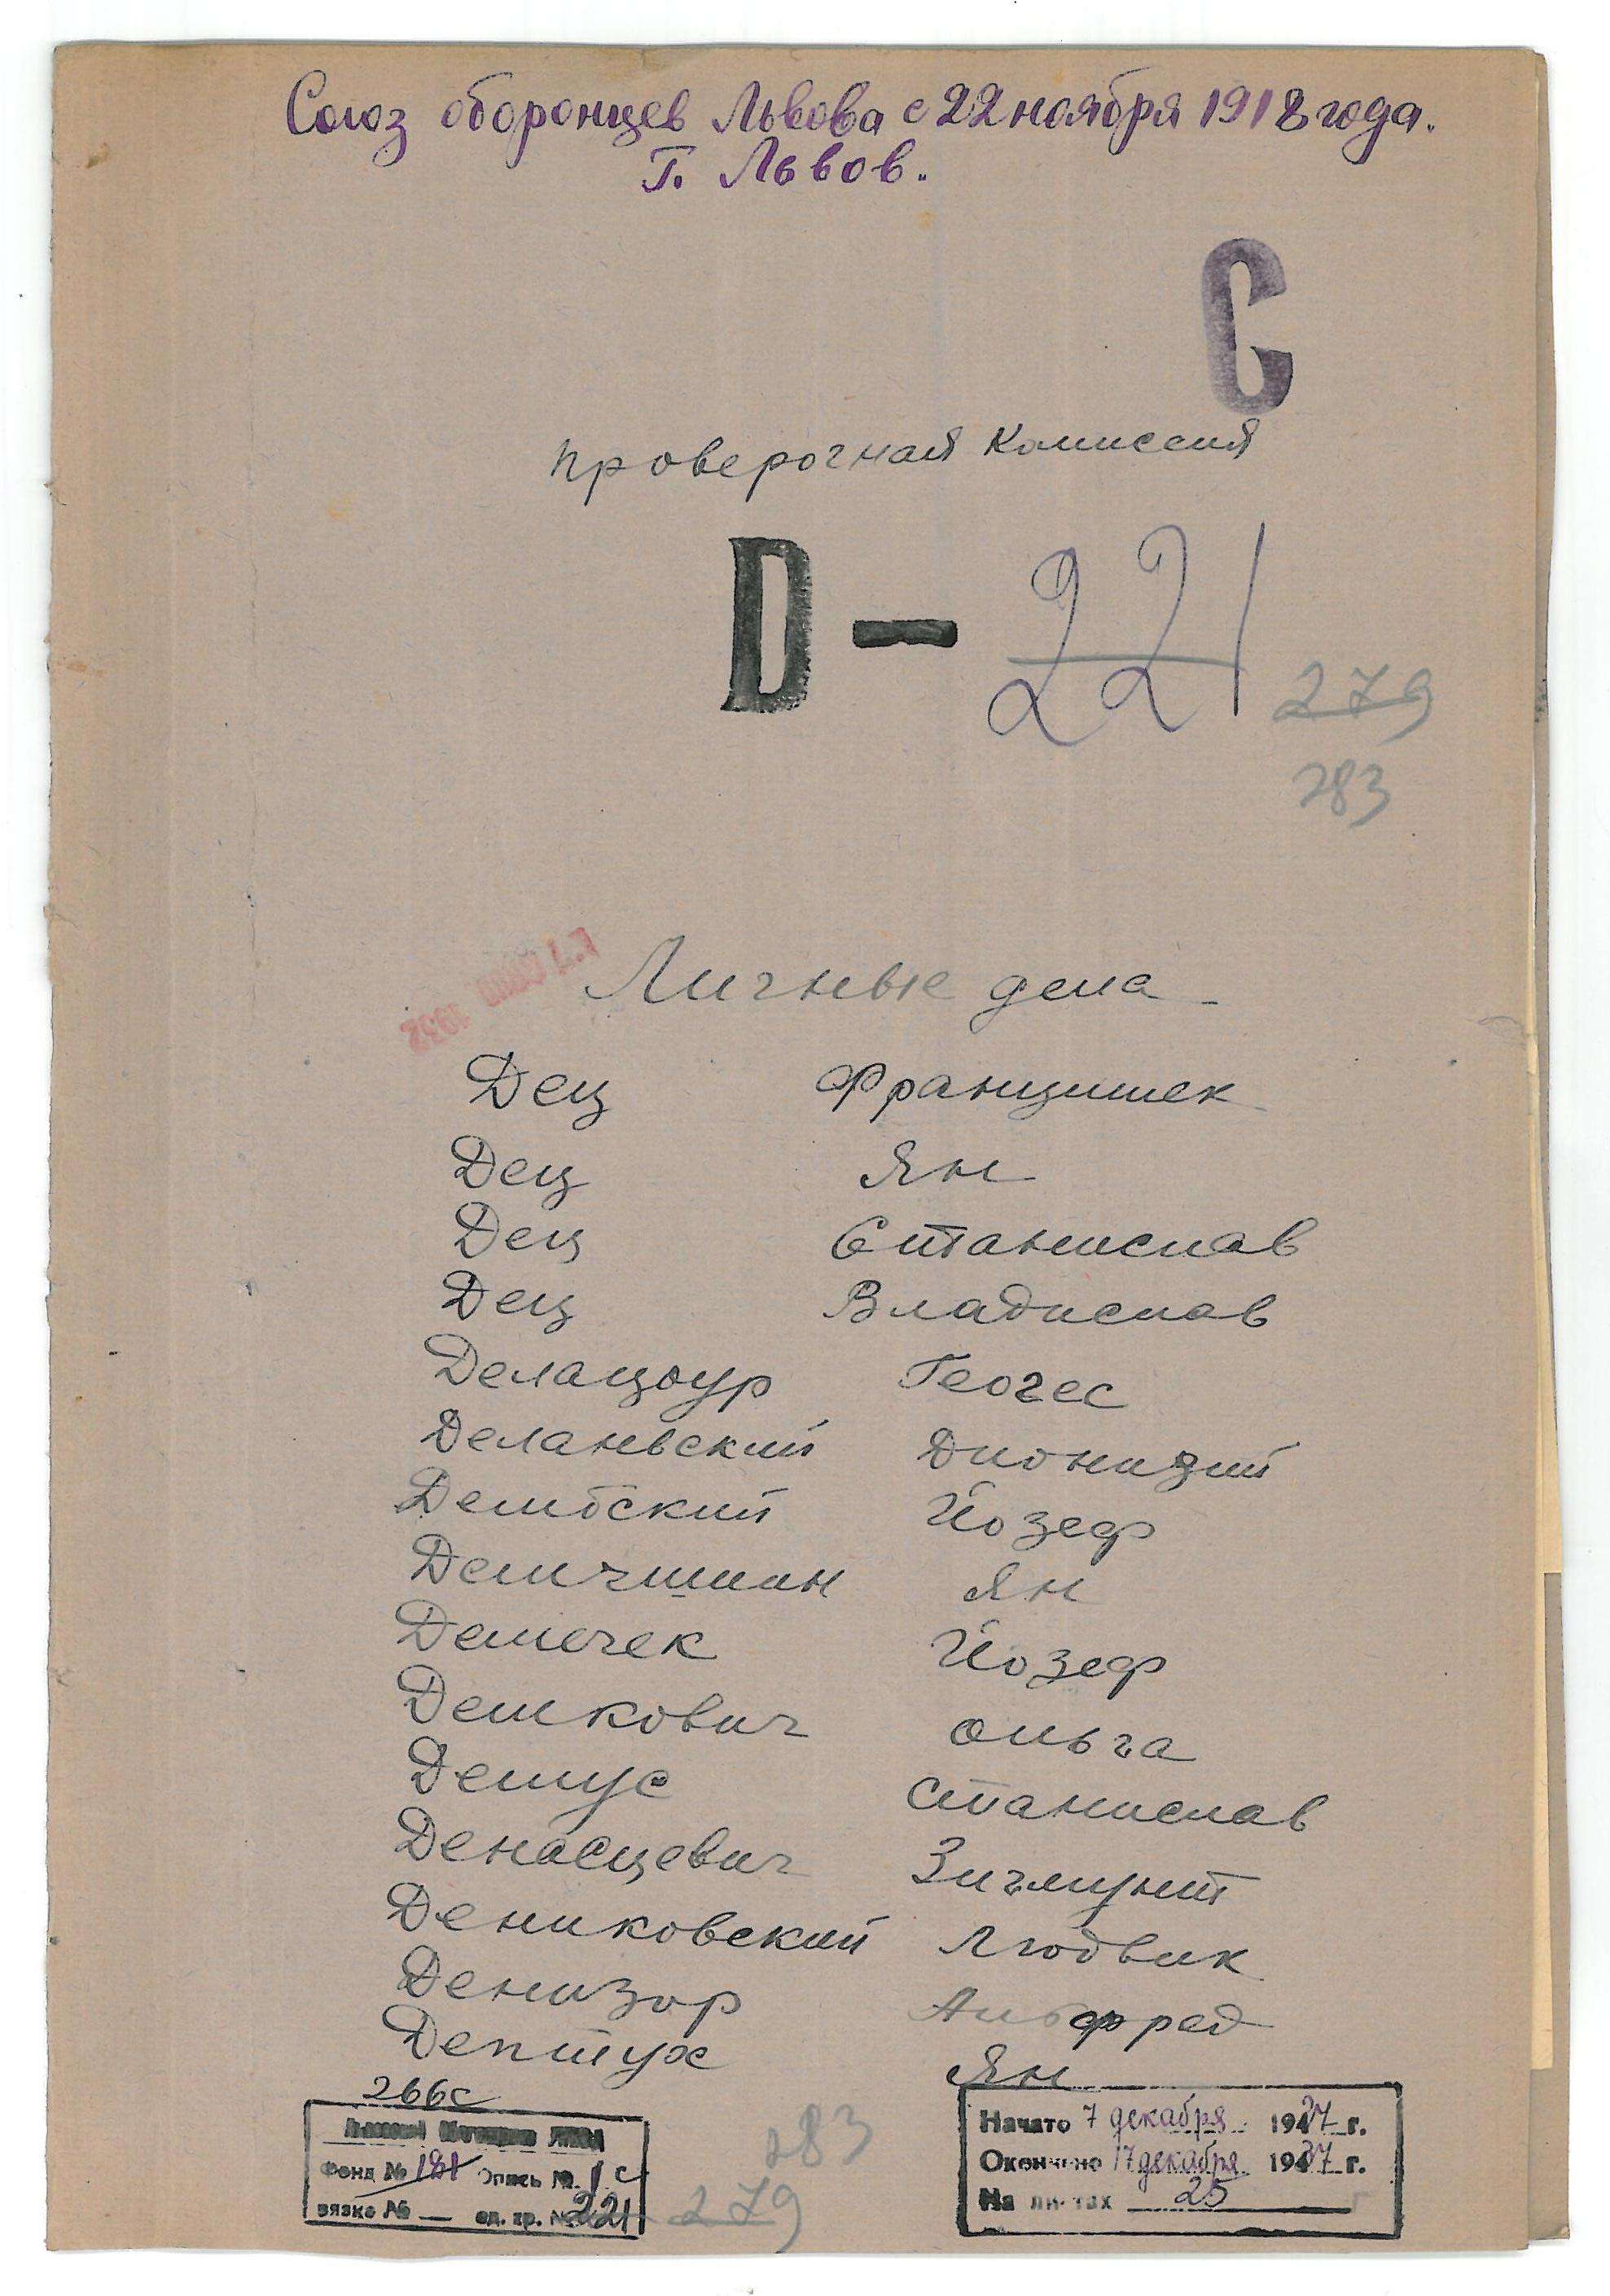 Союз оборонцев Львова с 22 ноября 1918 года.
Г. Львов.
С
Проверочная комиссия
D – 221
279
283
Личные дела
Дец Францишек
Дец Ян
Дец Станислав
Дец Владислав
Делацоур Геогес
Деланевский Дионизий
Дембский Йозеф
Демчишин Ян
Демечек Йозеф
Демкович Ольга
Демус Станислав
Денасцевич Зигмунт
Дениковский Людвик
Денизор Альфред
Дептух Ян
266с
Фонд № 181 Опись № 1 с
вязка № — ед. хр. № 221
283
279
Начато 7 декабря 1937 г.
Окончено 17 декабря 1937 г.
На листах 25